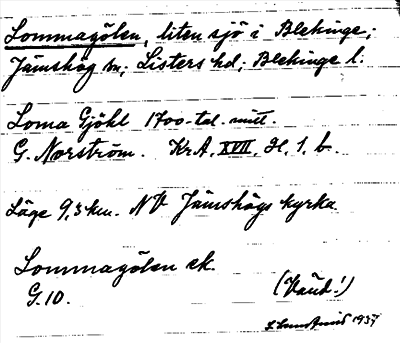 Lommagölen, liten sjö i Blekinge;
Jämshög sn; Listers hd; Blekinge l.
Loma Gjöhl 1700-tal. mitt.
G. Norström. Kr.A. XVII. H. 1. b.
Läge 9,3 km. NV Jämshögs kyrka.
Lommagölen ek.
G. 10.
(Vänd!)
1937